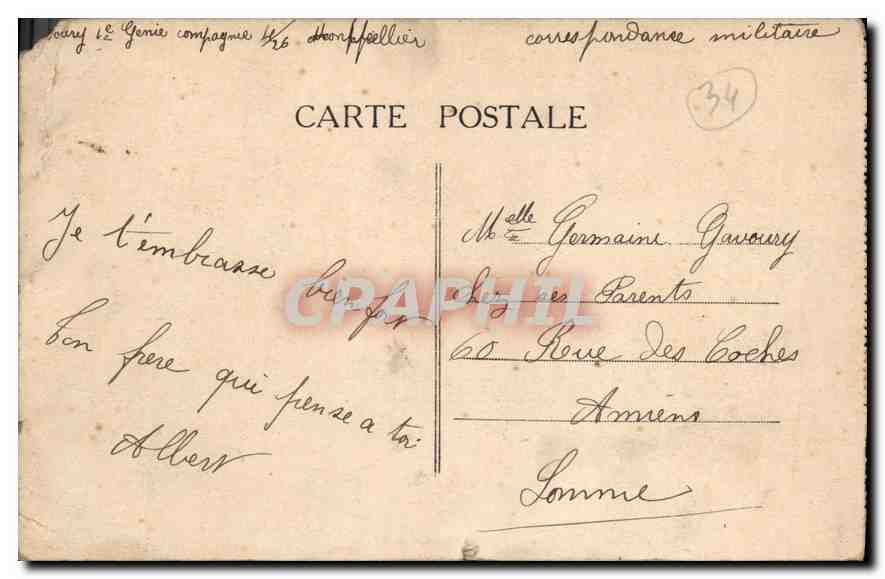 oury 1e Genie compagnie 4/26 Montpellier correspondance militaire
34
CARTE POSTALE
Je t'embrasse bien fort
Ton frere qui pense a toi
Albert
Melle Germaine Gavoury
chez ses Parents
60 Rue des Coches
Amiens
Somme
CPAPHIL